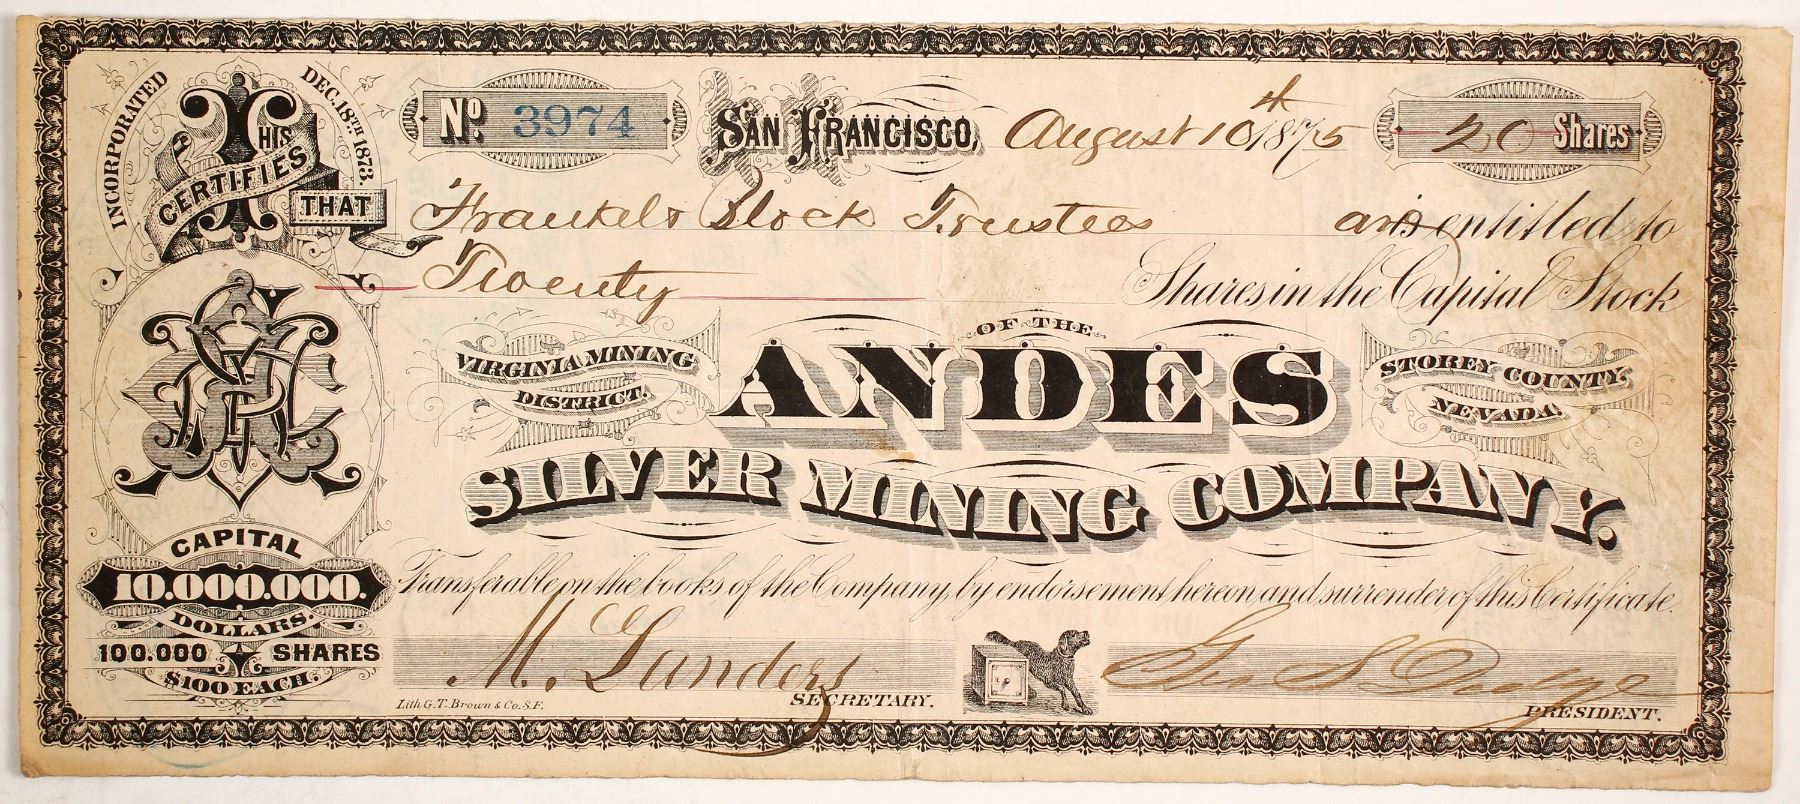 INCORPORATED DEC. 18TH 1873.
THIS CERTIFIES THAT
No. 3974
SAN FRANCISCO, August 10th 1875
20 Shares
Frankel & Block Trustees are entitled to
Twenty Shares in the Capital Stock
OF THE
VIRGINIA MINING DISTRICT.
ANDES
STOREY COUNTY, NEVADA.
SILVER MINING COMPANY.
CAPITAL
10.000.000.
DOLLARS.
100.000 SHARES
$100 EACH.
Transferable on the books of the Company, by endorsement hereon and surrender of this Certificate.
M. Landers
SECRETARY.
Geo S Dodge
PRESIDENT.
Lith G.T. Brown & Co. S.F.